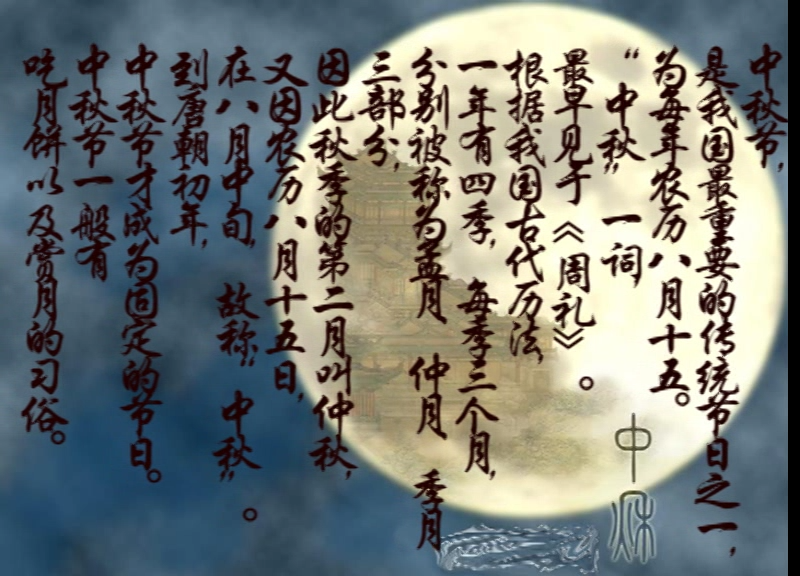 中秋节，
是我国最重要的传统节日之一，
为每年农历八月十五。
“中秋”一词，
最早见于《周礼》。
根据我国古代历法，
一年有四季，每季三个月，
分别被称为孟月 仲月 季月
三部分，
因此秋季的第二月叫仲秋，
又因农历八月十五日，
在八月中旬，故称“中秋”。
到唐朝初年，
中秋节才成为固定的节日。
中秋节一般有
吃月饼以及赏月的习俗。
中秋